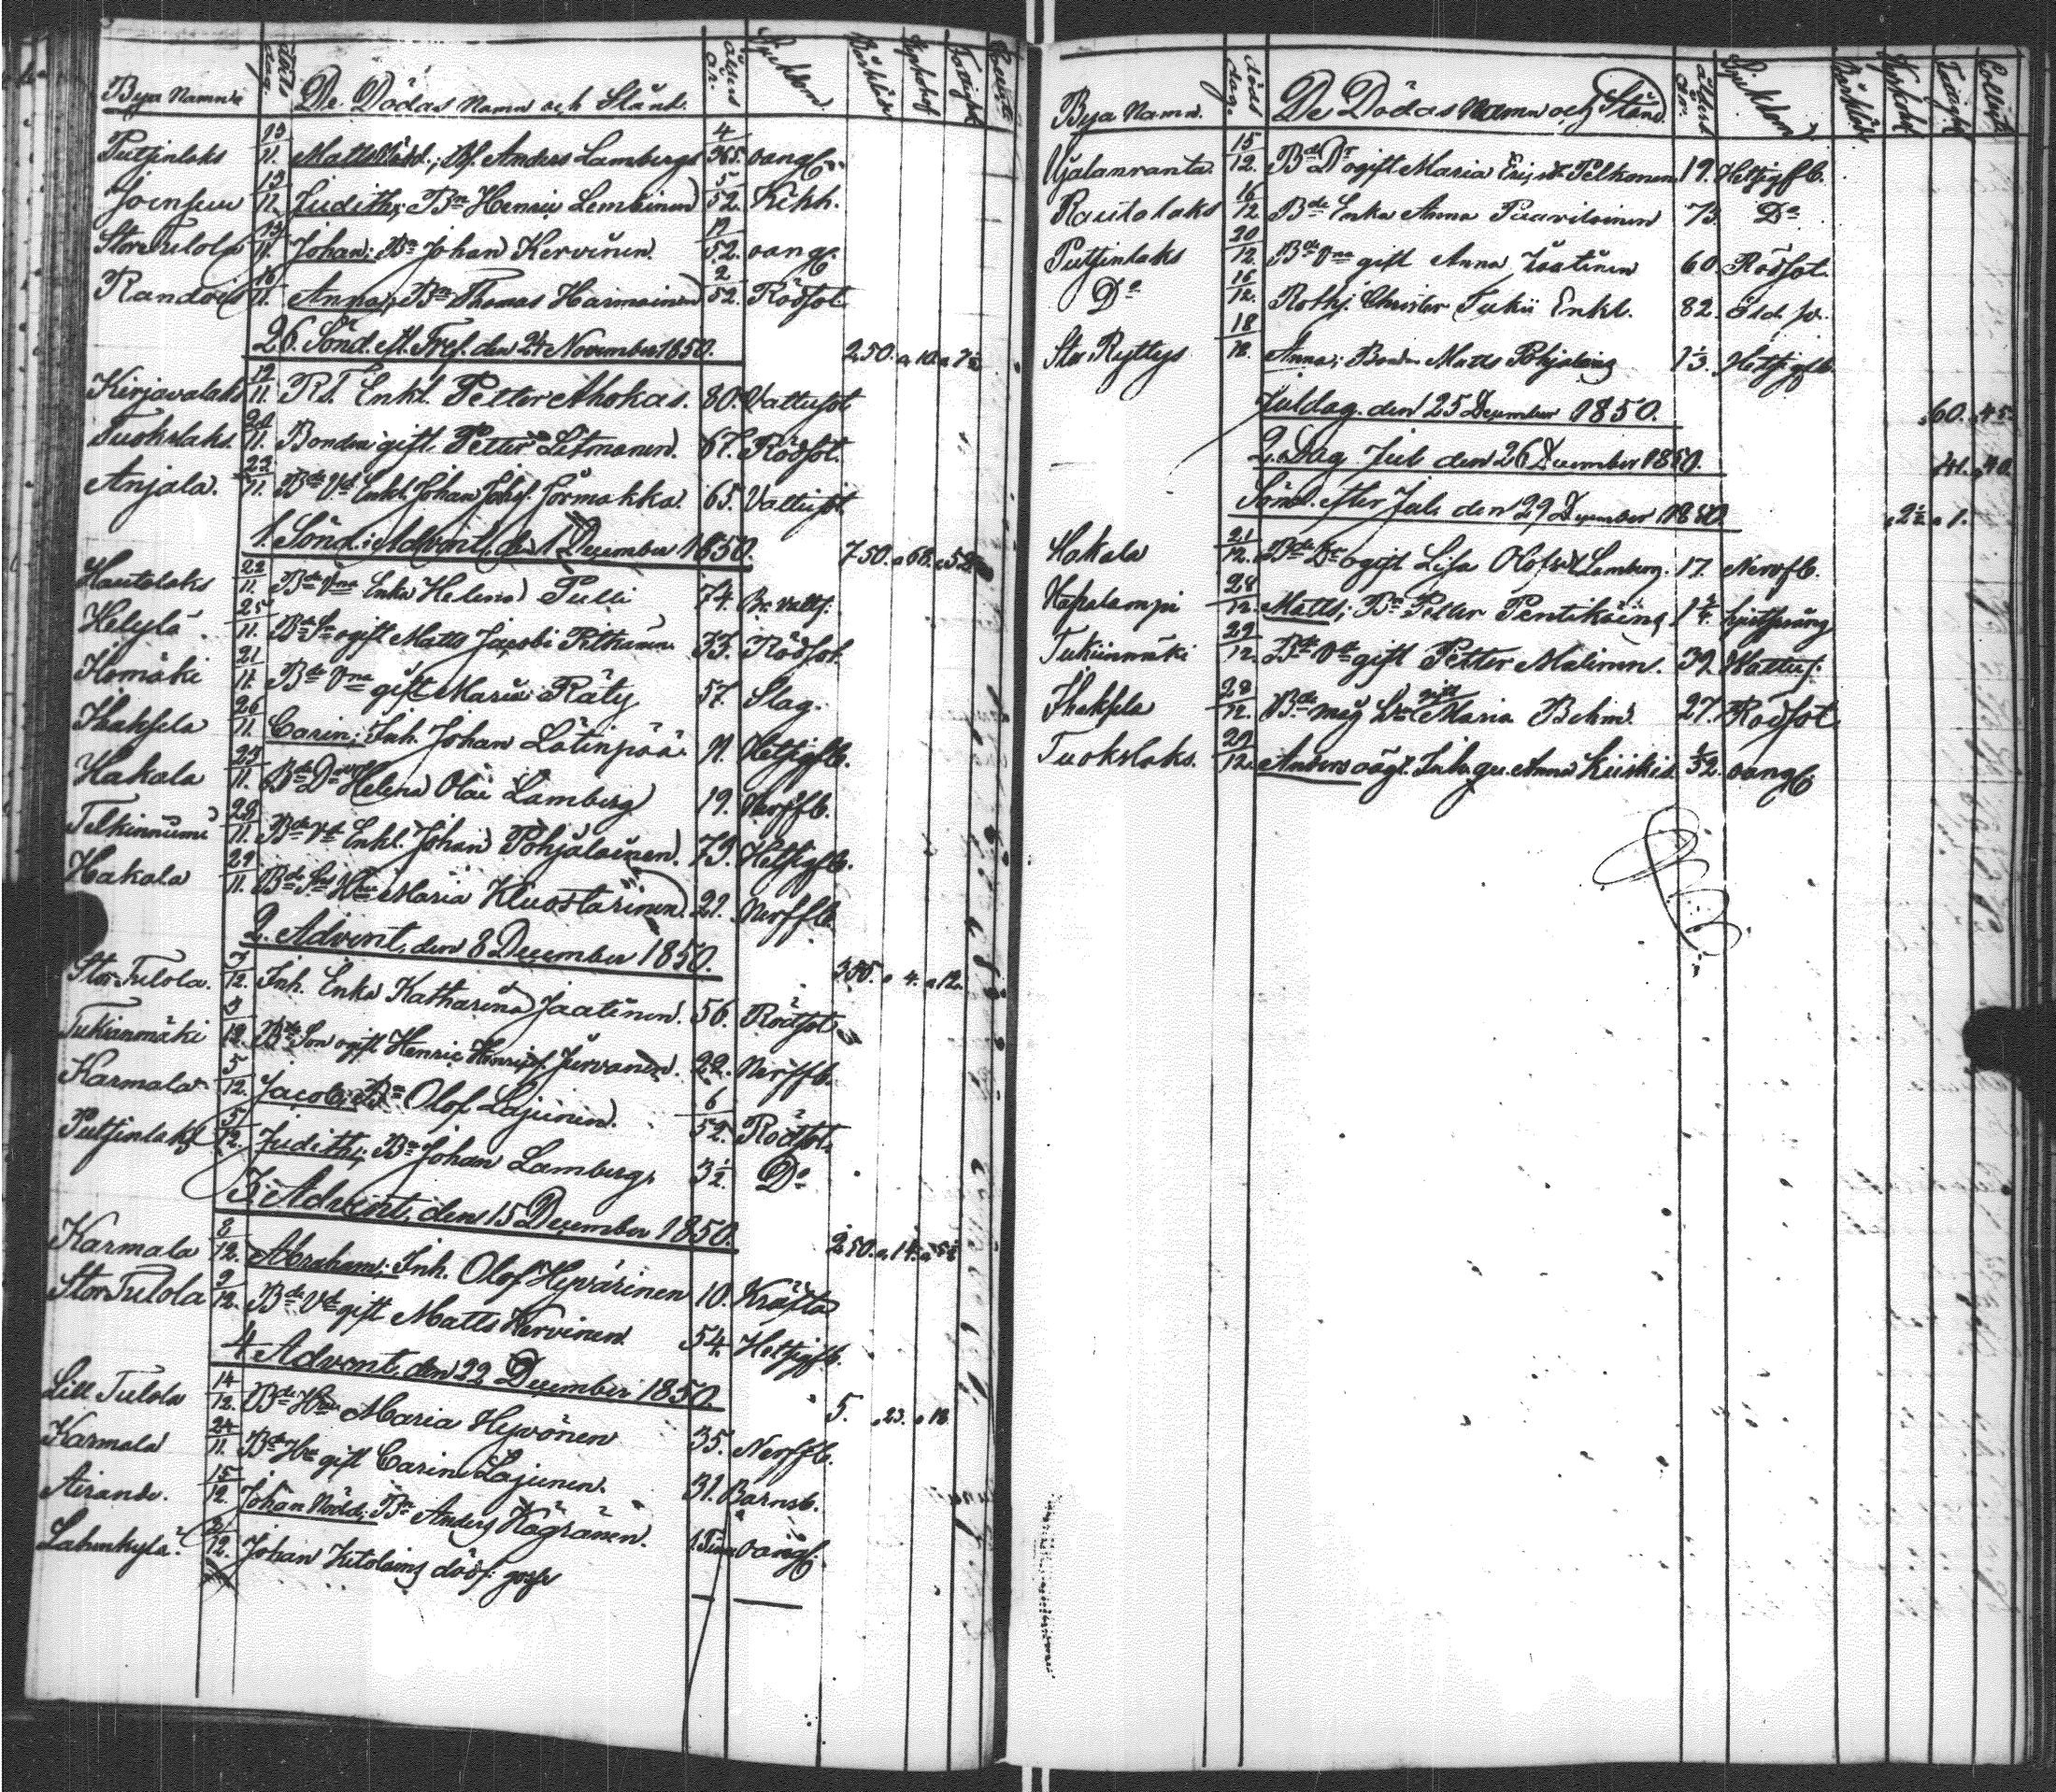 Bya Namn döds dag. De Dödas Namn och Stånd. ålder år. Sjukdom Bårkläde Kyrkohof Fattigh. Collecta
Putsinlaks 13/11. Matts Nödd.; Bs. Anders Lambergs 4/365. oangf.
Joensuu 13/11. Judith; Bn Henric Lembinen 5/52. Kikh.
Stor Tulola 13/11. Johan; Bn Johan Kervinen. 19/52. oangf.
Randois 16/11. Anna; Bn Thomas Harmainen 2/52. Rödsot
26. Sönd. eft. Tref. den 24 November 1850. 250.
Kirjavalaks 19/11. Rt. Enkl. Petter Ahokas. 80. Vattusot
Tuokslaks. 20/11. Bonden gift Petter Litmanen. 67. Rödsot.
Anjala. 22/11. Bde Vd Enkl. Johan Johsf. Jormakka. 65. Vattusot
1. Sönd. i Advent, den 1 December 1850. 750.
Hautolaks 22/11. Bde Vna Enka Helena Pulli 74. Br. vatts:
Helylä 25/11. Bde Sn ogift Matts Jacobi Pitkänen 33. Rödsot
Komäki 21/11. Bde Vna gift Maria Räty 57. Slag.
Ihaksela 26/11. Carin; Inh. Johan Lätinpää. 11. Hetsigfb.
Hakala 23/11. Bde Dr Helena Olai Lamberg 19. Nerffb.
Telkinniemi 28/11. Bde Vd Enkl. Johan Pohjalainen. 73. Hetsigfb.
Hakala 29/11. Bde Hu Maria Kluostarinen 21. Nerffb.
2. Advent, den 8 December 1850. 350. 4. 12.
Stor Tulola. 3/12. Inh. Enka Katharina Jaatinen. 56. Rödsot
Tukianmäki 3/12. Bde Son ogift Henric Henricsf. Jurvanen. 22. Nerffb.
Karmala 5/12. Jacob; Bn Olof Lajunen. 6/52. Rödsot.
Putsinlaks 5/12. Judith; Bn Johan Lamberg. 3½. Do
3. Advent, den 15 December 1850. 250. 14.
Karmala 8/12. Abraham; Inh. Olof Hyvärinen 10. Kräfta
Stor Tulola 9/12. Bde Vd gift Matts Kervinen 54. Hetsigfb.
4. Advent, den 22 December 1850. 5. 23. 18
Lill Tulola 14/12. Bde Hu Maria Hyvönen 35. Nerffb.
Karmala 24/11. Bde Hu gift Carin Lajunen. 31. Barnsb.
Airanne. 15/12. Johan Nödd; Bn Anders Kägränen. 1 Tim oangf.
Lahenkylä? 2/12. Johan Kitolains dödf: gosse
Bya Namn. döds dag. De Dödas Namn och Stånd. ålder år. Sjukdom Bårkläde Kyrkohof Fattigh. Collecta
Ujalanranta. 15/12. Bde Dr ogift Maria Ericsdr Pelkonen 19. Hetsigfb.
Rautalaks 16/12. Bde Enka Anna Paavilainen 73. Do
Putsinlaks 20/12. Bde Vna gift Anna Jäätinen 60 Rödsot.
Do 16/12. Rothj. Christer Tukii Enkl. 82. Åld.
Stor Ryttys 18/12. Anna; Bonden Matts Pohjolains 1⅓. Hetsigfb.
Juldag. den 25 December 1850. 60. 45
2. Dag Jul den 26 December 1850. 40.
Sönd. efter Jul. den 29 December 1850. 2½. 1.
Hakala 21/12. Bde Dr ogift Lisa Olofsdr Lamberg. 17. Nervfb.
Hapalampi 28/12. Matts; Bn Petter Pentikäins 1¼. Ljustsprång
Tukiinmäki 29/12. Bde Vd gift Petter Malinen. 39. Wattus:
Ihaksela 28/12. Bde måg Hu gift Maria Behm. 27. Rödsot
Tuokslaks. 29/12. Anders oägt. Inh. qv. Anna Kiiskis. 5/52. oangf.